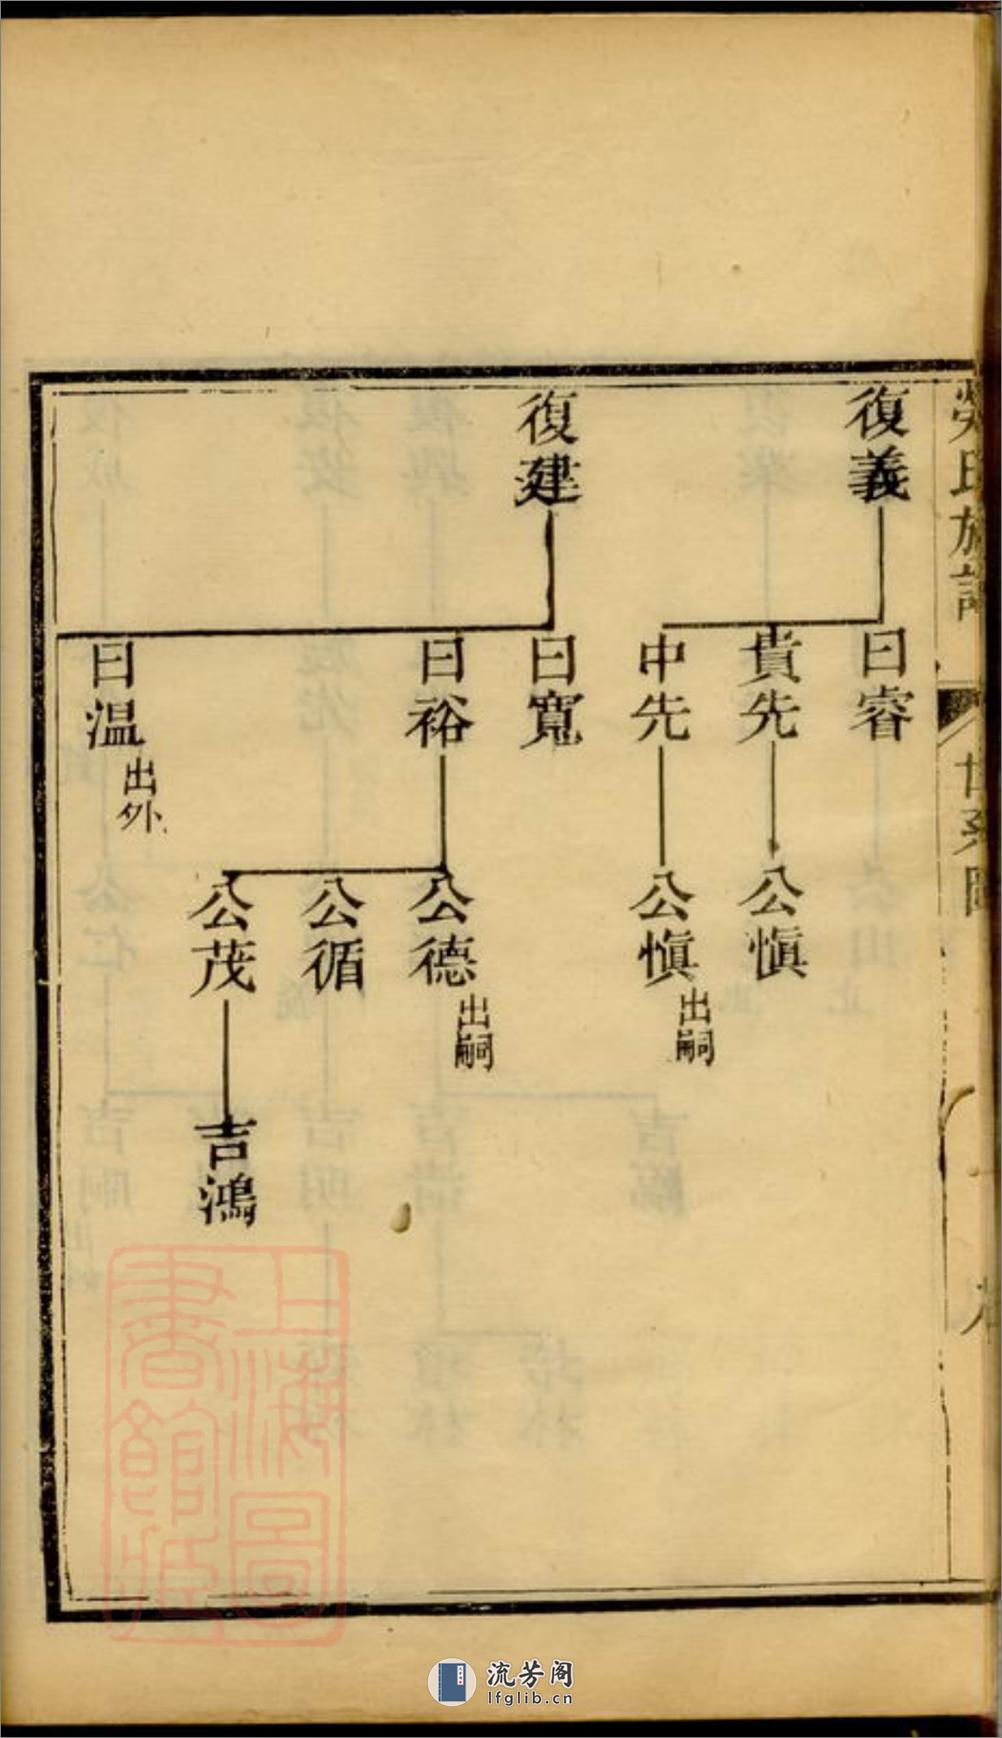 氏族譜
世系圖
復義
曰睿
貴先
公愼
中先
公愼
出嗣
復建
曰寬
曰裕
公德
出嗣
公循
公茂
吉鴻
曰温
出外
上海圖
書館藏
流芳阁
lfglib.cn